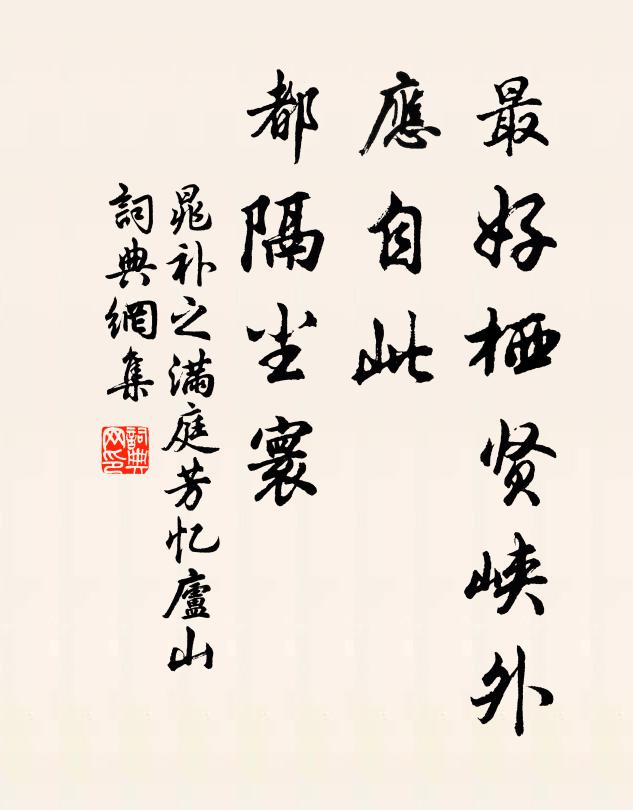 最好栖贤峡外
應自此
都隔尘寰
晁补之满庭芳忆廬山
詞典網集
詞典
网印